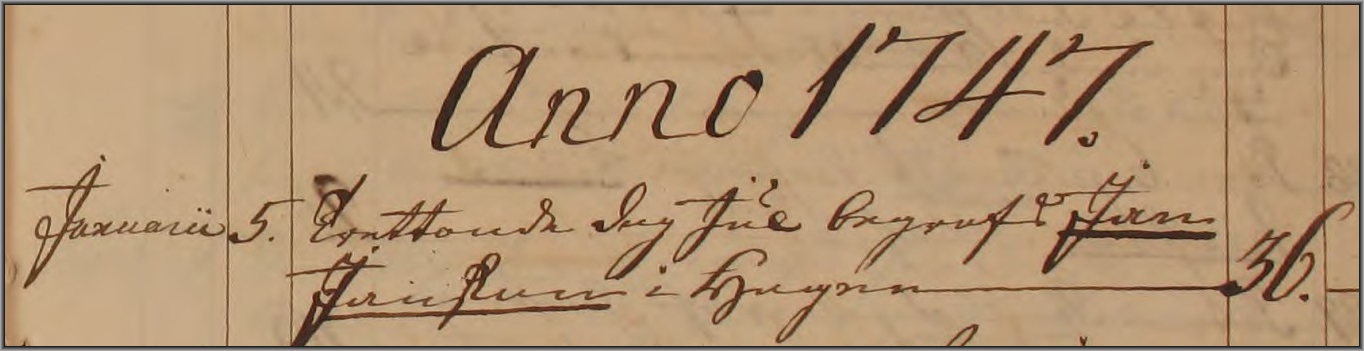 Anno 1747.
Januarii 5. Trettonde dag Jul begrofs Jan
Jansson i Hagen 36.